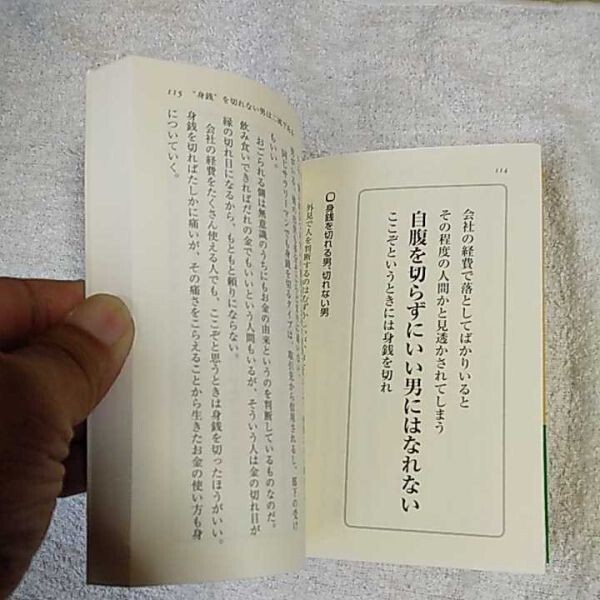 114
会社の経費で落としてばかりいると
その程度の人間かと見透かされてしまう
自腹を切らずにいい男にはなれない
ここぞというときには身銭を切れ
身銭を切れる男、切れない男
外見で人を判断するのはむずかしい
115 “身銭”を切れない男は二流である
同じサラリーマンでも身銭を切るタイプは、取引先から信用されるし、部下の受け
もいい。
おごられる側は無意識のうちにもお金の由来というのを判断しているものなのだ。
飲み食いできればだれの金でもいいという人間もいるが、そういう人は金の切れ目が
縁の切れ目になるから、もともと頼りにならない。
会社の経費をたくさん使える人でも、ここぞと思うときは身銭を切ったほうがいい。
身銭を切ればたしかに痛いが、その痛さをこらえることから生きたお金の使い方も身
についていく。